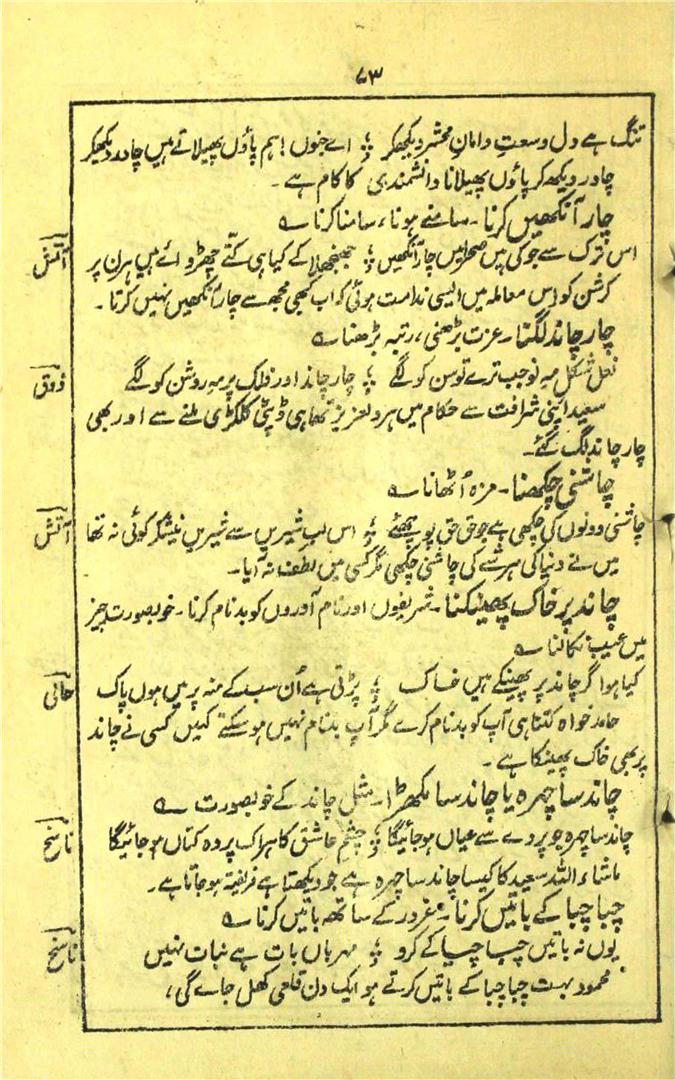 ۷۳
تنگ ہے دل وسعتِ دامانِ محشر دیکھکر ؛ اے جنوں! ہم پاؤں پھیلاتے ہیں چادر دیکھکر
چادر دیکھ کر پاؤں پھیلانا دانشمندی کا کام ہے۔
چار آنکھیں کرنا۔ سامنے ہونا، سامنا کرنا ؎
آتش اس ترک سے جو کی ہیں صحرا میں چار آنکھیں ؛ جھنجھلا کے کیا ہی کتّے چھڑوائے ہیں ہرن پر
کرشن کو اس معاملہ میں ایسی ندامت ہوئی کہ اب کبھی مجھ سے چار آنکھیں نہیں کرتا۔
چار چاند لگنا۔ عزت بڑھنی، رتبہ بڑھنا ؎
ذوق نعل شکل مہِ نو جب ترے توسن کو لگے ؛ چار چاند اور فلک پر مہِ روشن کو لگے
سعید اپنی شرافت سے حکام میں ہردلعزیز تھا ہی ڈپٹی کلکٹری ملنے سے اور بھی
چار چاند لگ گئے۔
چاشنی چکھنا۔ مزہ اُٹھانا ؎
آتش چاشنی دونوں کی چکھی ہے جو حق حق پوچھئے ؛ اس لبِ شیریں سے شیریں نیشکر کوئی نہ تھا
میں نے دنیا کی ہر شے کی چاشنی چکھی مگر کسی میں لطف نہ آیا۔
چاند پر خاک پھینکنا۔ شریفوں اور نام آوروں کو بدنام کرنا۔ خوبصورت چیز
میں عیب نکالنا ؎
حالی کیا ہوا گر چاند پر پھینکے ہیں خاک ؛ پڑتی ہے اُن سب کے منہ پر میں ہوں پاک
حامد خواہ کتنا ہی آپ کو بدنام کرے مگر آپ بدنام نہیں ہوسکتے کہیں کسی نے چاند
پر بھی خاک پھینکا ہے۔
چاند سا چہرہ یا چاند سا مکھڑا۔ مثل چاند کے خوبصورت ؎
ناسخ چاند سا چہرہ جو پردے سے عیاں ہوجائیگا ؛ چشمِ عاشق کا ہر اک پردہ کتاں ہوجائیگا
ماشاء اللہ سعید کا کیسا چاند سا چہرہ ہے جو دیکھتا ہے فریفتہ ہوجاتا ہے۔
چبا چبا کے باتیں کرنا۔ غرور کے ساتھ باتیں کرنا ؎
ناسخ یوں نہ باتیں چبا چبا کے کرو ؛ مہرباں بات ہے نبات نہیں
محمود بہت چبا چبا کے باتیں کرتے ہو ایک دن قلعی کھل جائے گی،